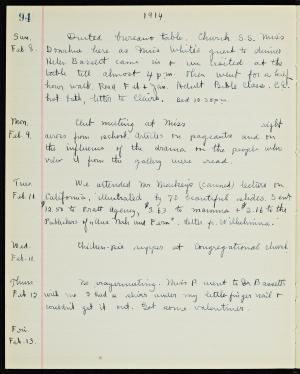 94 1914
Sun. Dusted bureau & table. Church. S.S. Miss
Feb. 8. Donahue here as Miss White's guest to dinner
Helen Bassett came in & we visited at the
table till almost 4 p.m. Then went for a half
hour walk. Read Feb & Jan. Adult Bible Class. C.E.
hot bath, letter to Claire. Bed 10:30 p.m.
Mon. Club meeting at Miss right
Feb. 9. across from school. Articles on pageants and on
the influence of the drama on the people who
view it from the gallery were read.
Tues. We attended Mr. Mackey's (canned) lecture on
Feb. 10. California, illustrated by 70 beautiful slides. Sent
$12.50 to Pratt Agency, $3.63 to mamma & $2.16 to the
Publishers of and Fern". Letter fr. Wilhelmina.
Wed. Chicken-pie supper at Congregational church
Feb. 11.
Thurs. No prayermeeting. Miss P. went to Dr. Bassett's
Feb 12 with me. I had a sliver under my little finger nail &
couldn't get it out. Got some valentines.
Fri.
Feb. 13.